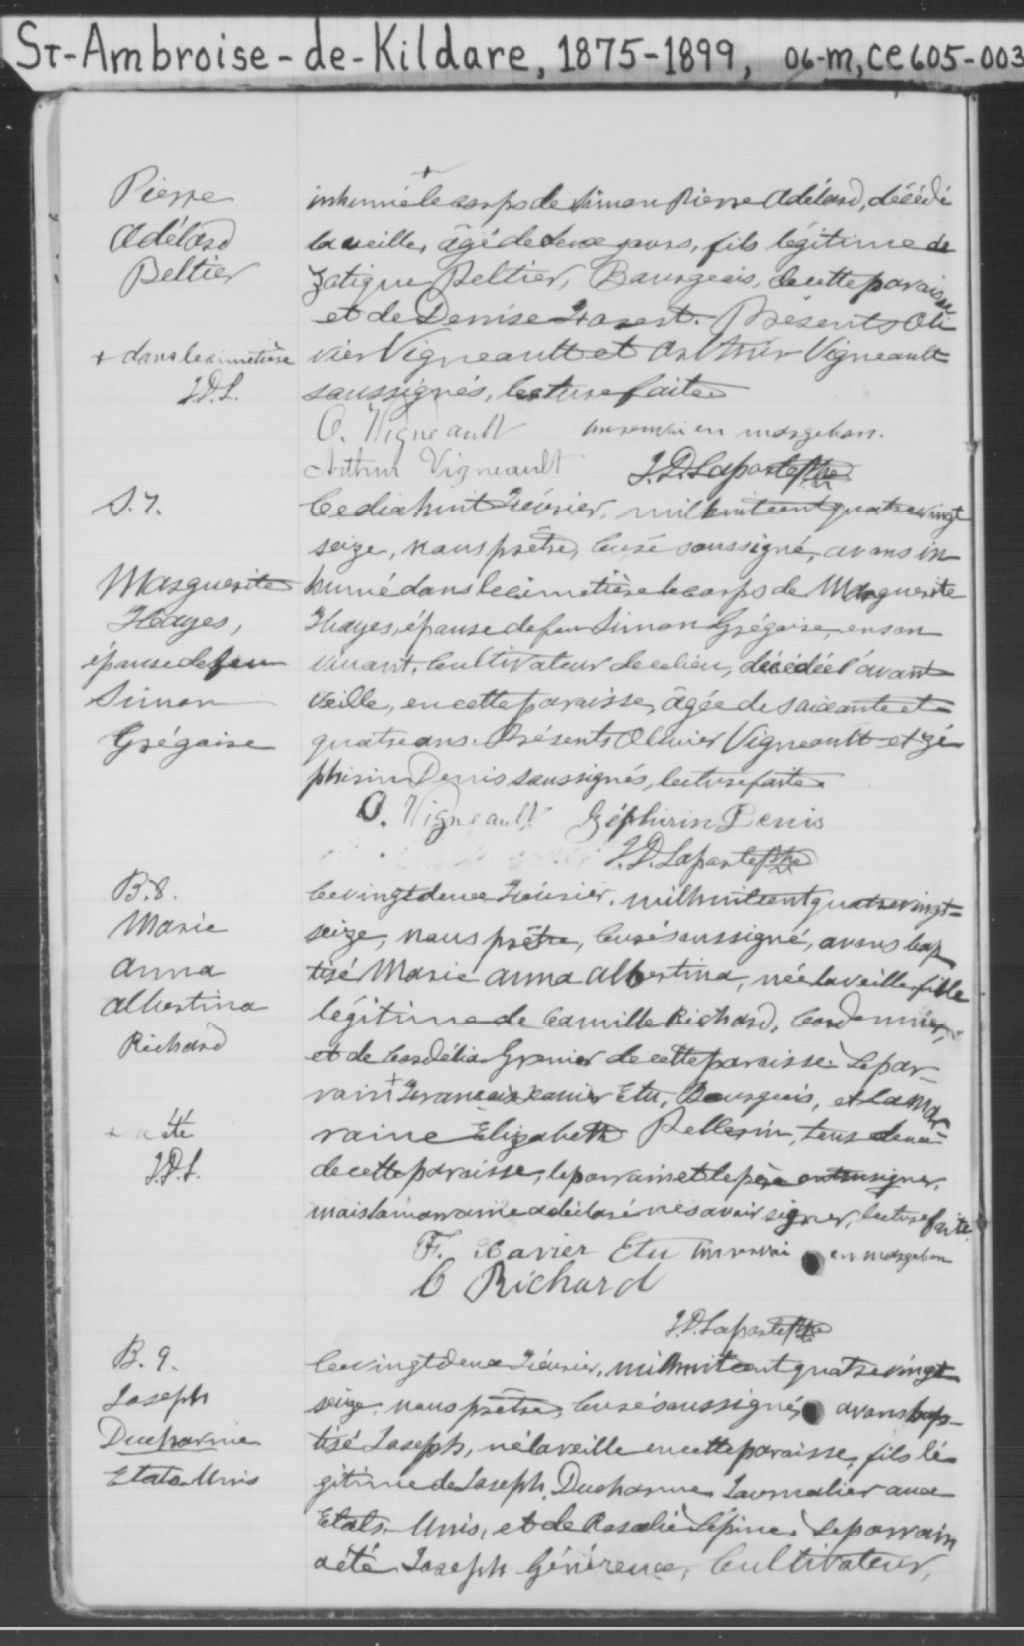 St-Ambroise-de-Kildare, 1875-1899, 06-m, CE605-003
Pierre
Adélard
Peltier
+ dans le cimetière
J.D.L.
inhumé + le corps de Simon Pierre Adélard, décédé
la veille, âgé de deux jours, fils légitime de
Peltier, Bourgeois, de cette paroisse
et de Denise . Présents Oli
vier Vigneault et Arthur Vigneault
soussignés, lecture faite
O. Vigneault un renvoi en marge bon.
Arthur Vigneault J.D. Laporte Ptre
S. 7.
Marguerite
Hayes,
épouse de feu
Simon
Grégoire
Le dix huit Février, mil huit cent quatre vingt
seize, nous prêtre, Curé soussigné, avons in
humé dans le cimetière le corps de Marguerite
Hayes, épouse de feu Simon Grégoire, en son
vivant, Cultivateur de ce lieu, décédée l'avant
veille, en cette paroisse, âgée de soixante et
quatre ans. Présents Olivier Vigneault et Zé
phirin Denis soussignés, lecture faite
O. Vigneault Zéphirin Denis
J.D. Laporte Ptre
B. 8.
Marie
Anna
Albertina
Richard
+ a été
J.D.L.
Le vingt deux Février, mil huit cent quatre vingt-
seize, nous prêtre, Curé soussigné, avons bap
tisé Marie Anna Albertina, née la veille, fille
légitime de Camille Richard, Cordonnier,
et de Cordélia Grenier de cette paroisse. Le par-
rain + François Xavier Etu, Bourgeois, et la mar
raine Elizabeth Pellerin, tous deux
de cette paroisse, le parrain et le père ont su signer,
mais la marraine a déclaré ne savoir signer, lecture faite
F. Xavier Etu un renvoi en marge bon
C Richard
J.D. Laporte Ptre
B. 9.
Joseph
Ducharme
Etats Unis
Le vingt deux Février, mil huit cent quatre vingt
seize, nous prêtre, Curé soussigné, avons bap-
tisé Joseph, né la veille en cette paroisse, fils lé
gitime de Joseph Ducharme Journalier aux
Etats-Unis, et de Rosalie Lépine. Le parrain
a été Joseph Généreux, Cultivateur,